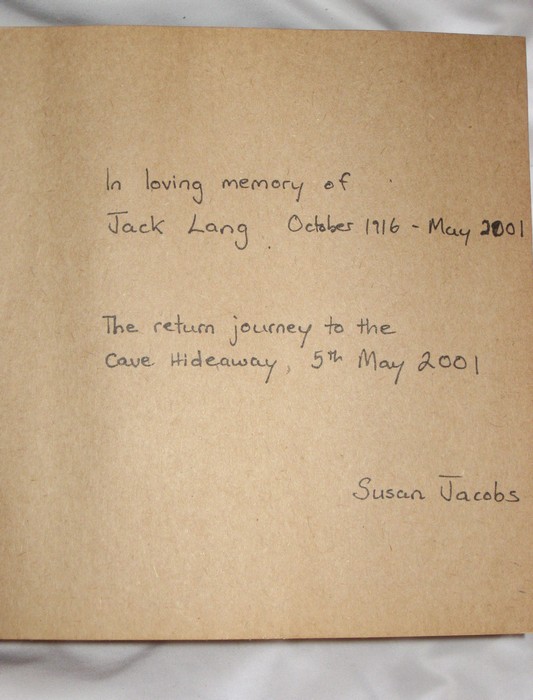 In loving memory of
Jack Lang. October 1916 - May 2001
The return journey to the
Cave Hideaway, 5th May 2001
Susan Jacobs